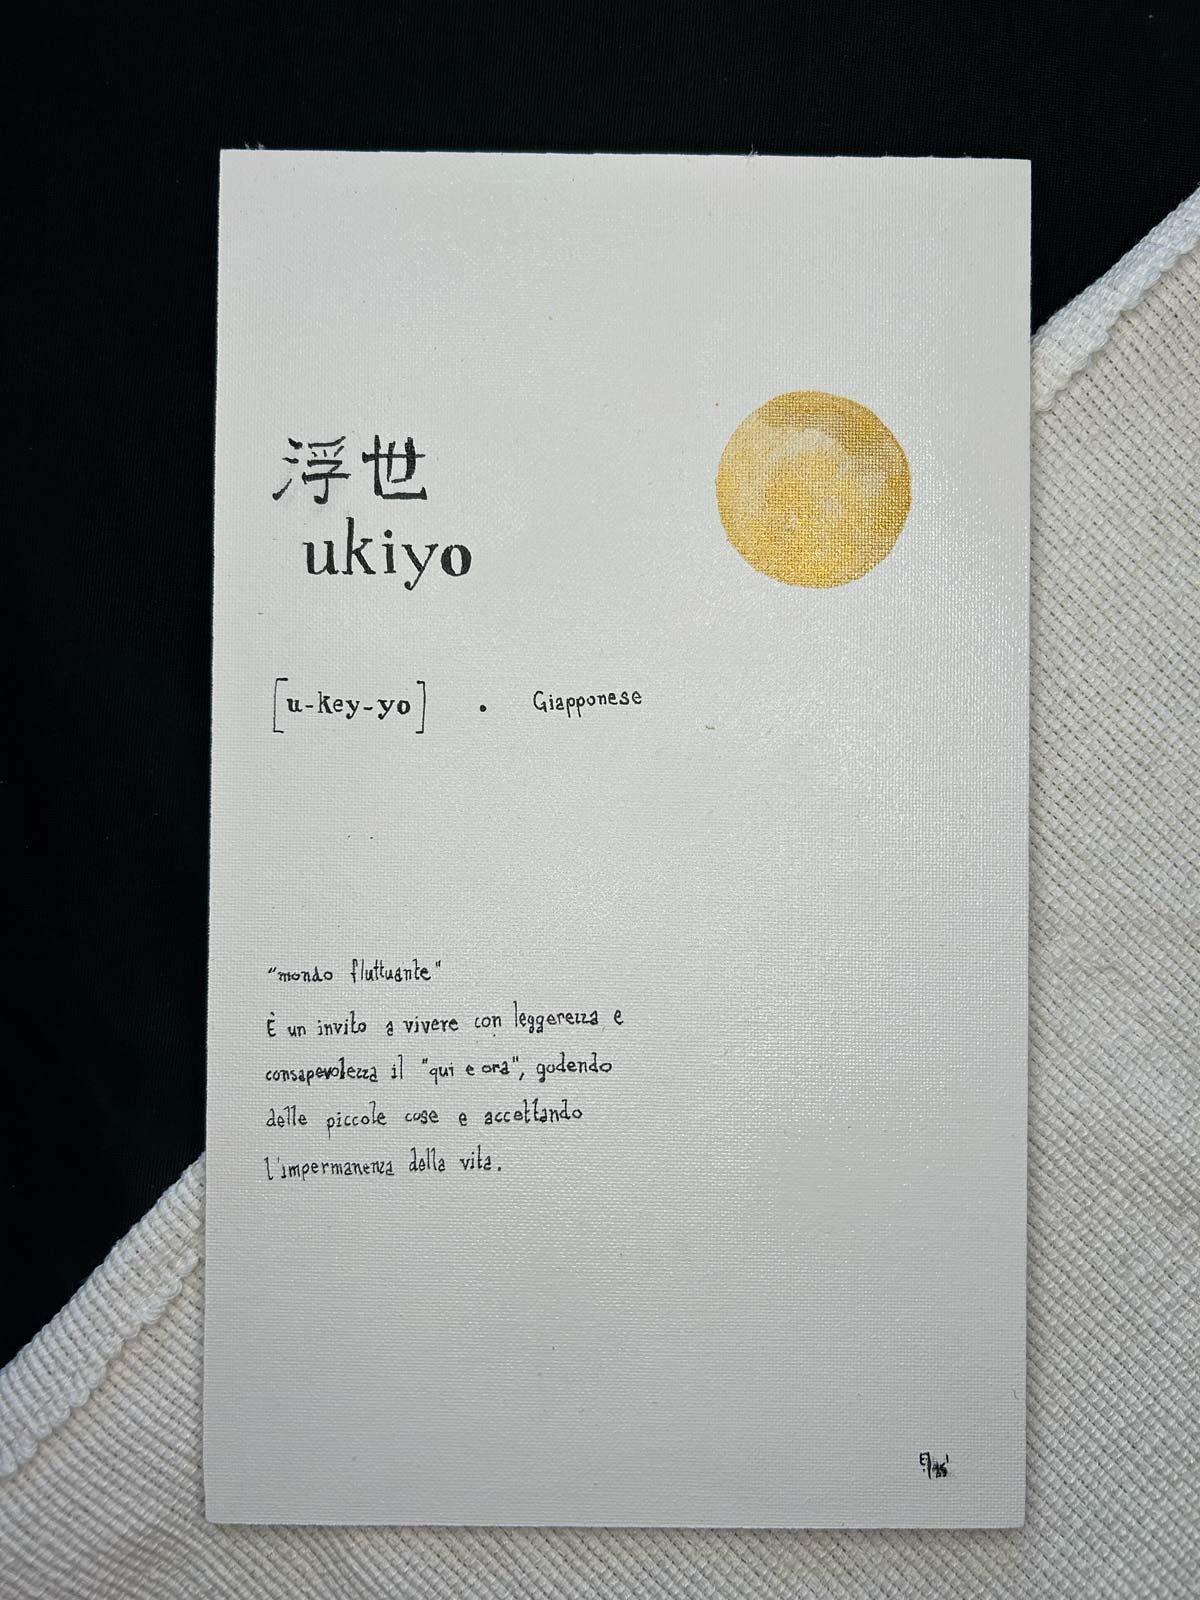 浮世
ukiyo
[u-key-yo] • Giapponese
"mondo fluttuante"
È un invito a vivere con leggerezza e
consapevolezza il "qui e ora", godendo
delle piccole cose e accettando
l'impermanenza della vita.